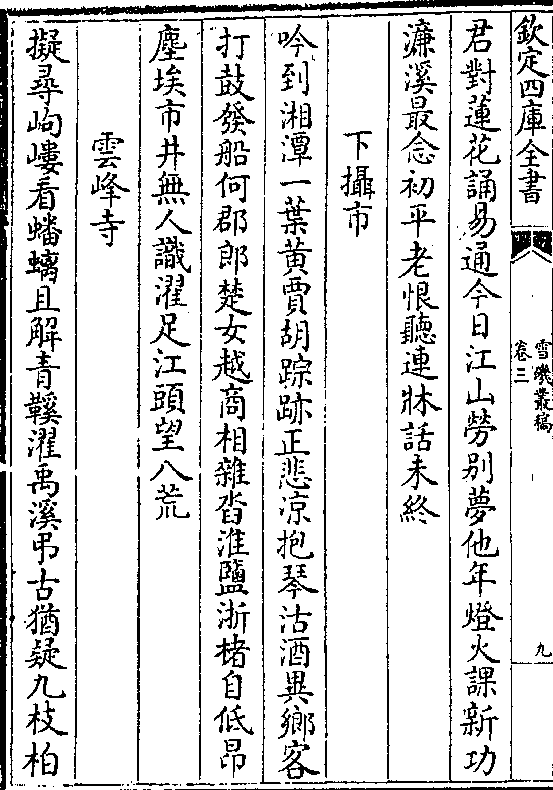 欽定四庫全書
雪磯叢稿
卷三
九
君對蓮花誦易通今日江山勞别夢他年燈火課新功
濂溪最念初平老恨聽連牀話未終
下攝市
吟到湘潭一葉黄賈胡踪跡正悲凉抱琴沽酒異鄉客
打鼓發船何郡郎楚女越商相雜沓淮鹽浙楮自低昂
塵埃市井無人識濯足江頭望八荒
雲峰寺
擬尋岣嶁看蟠螭且解青鞵濯禹溪弔古猶疑九枝柏